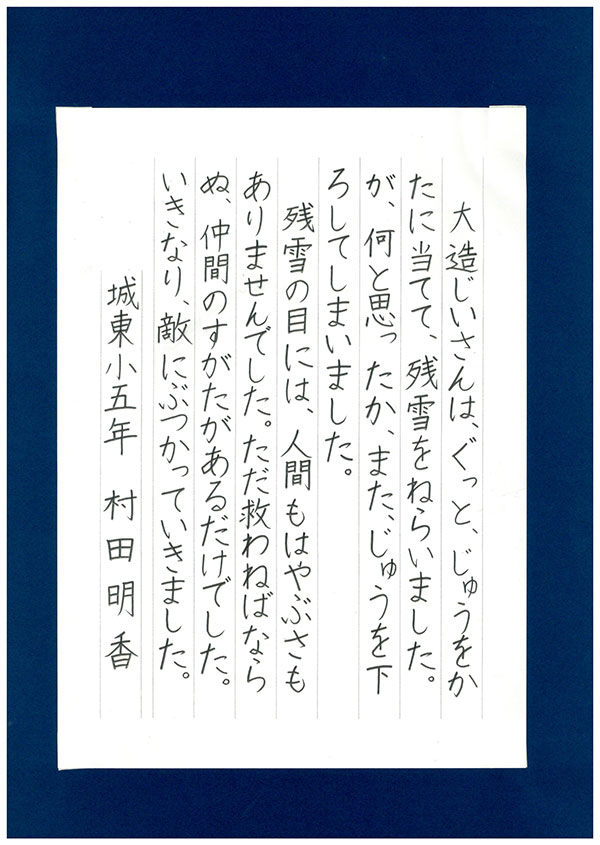 大造じいさんは、ぐっと、じゅうをか
たに当てて、残雪をねらいました。
が、何と思ったか、また、じゅうを下
ろしてしまいました。
残雪の目には、人間もはやぶさも
ありませんでした。ただ救わねばなら
ぬ、仲間のすがたがあるだけでした。
いきなり、敵にぶつかっていきました。
城東小五年 村田明香